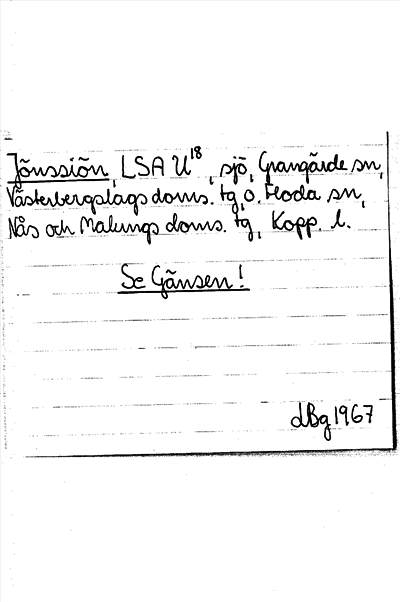 Jönssjön, LSA U18, sjö, Grangärde sn,
Västerbergslags doms. tg, o. Floda sn,
Nås och Malungs doms. tg, Kopp. l.
Se Gänsen!
dBg 1967